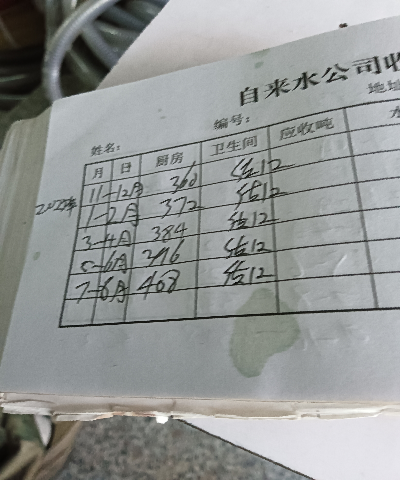 自来水公司收
编号： 地址
姓名：
月 日 厨房 卫生间 应收吨 水
11-12月 360 估12
2022年 1-2月 372 估12
3-4月 384 估12
5-6月 396 估12
7-8月 408 估12